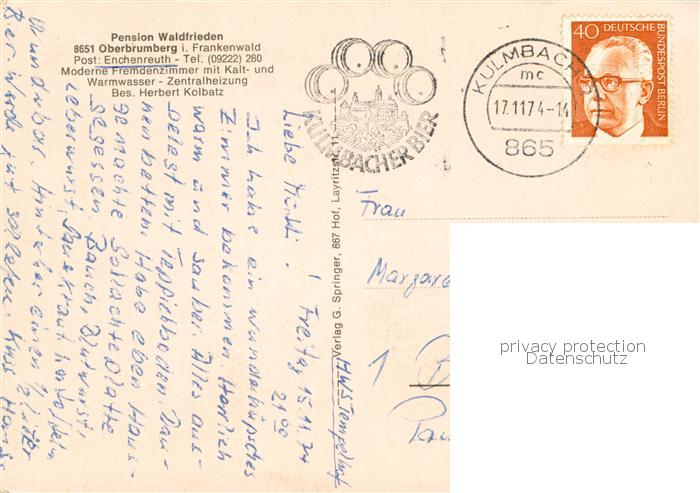 Pension Waldfrieden
8651 Oberbrumberg i. Frankenwald
Post: Enchenreuth - Tel. (09222) 260
Moderne Fremdenzimmer mit Kalt- und
Warmwasser - Zentralheizung
Bes. Herbert Kolbatz
KULMBACHER BIER
KULMBACH
mc
17.11.74-14
865
40 DEUTSCHE
BUNDESPOST BERLIN
Verlag G. Springer, 867 Hof, Layritzs
HWSTempelhof
Freitag 15.11.74
21°°
Liebe Mutti.
Ich habe ein wunderhübsches
Zimmer bekommen. Herrlich
warm und sauber. Alles aus-
gelegt mit Teppichboden. Dau-
nenbetten. Habe eben Haus-
gemachte Schlachteplatte
gegessen. Bauch, Blutwurst,
Leberwurst, Sauerkraut
wunderbar. Hinterher einen 1/2 Liter
Bier
Frau
Margar
1
privacy protection
Datenschutz